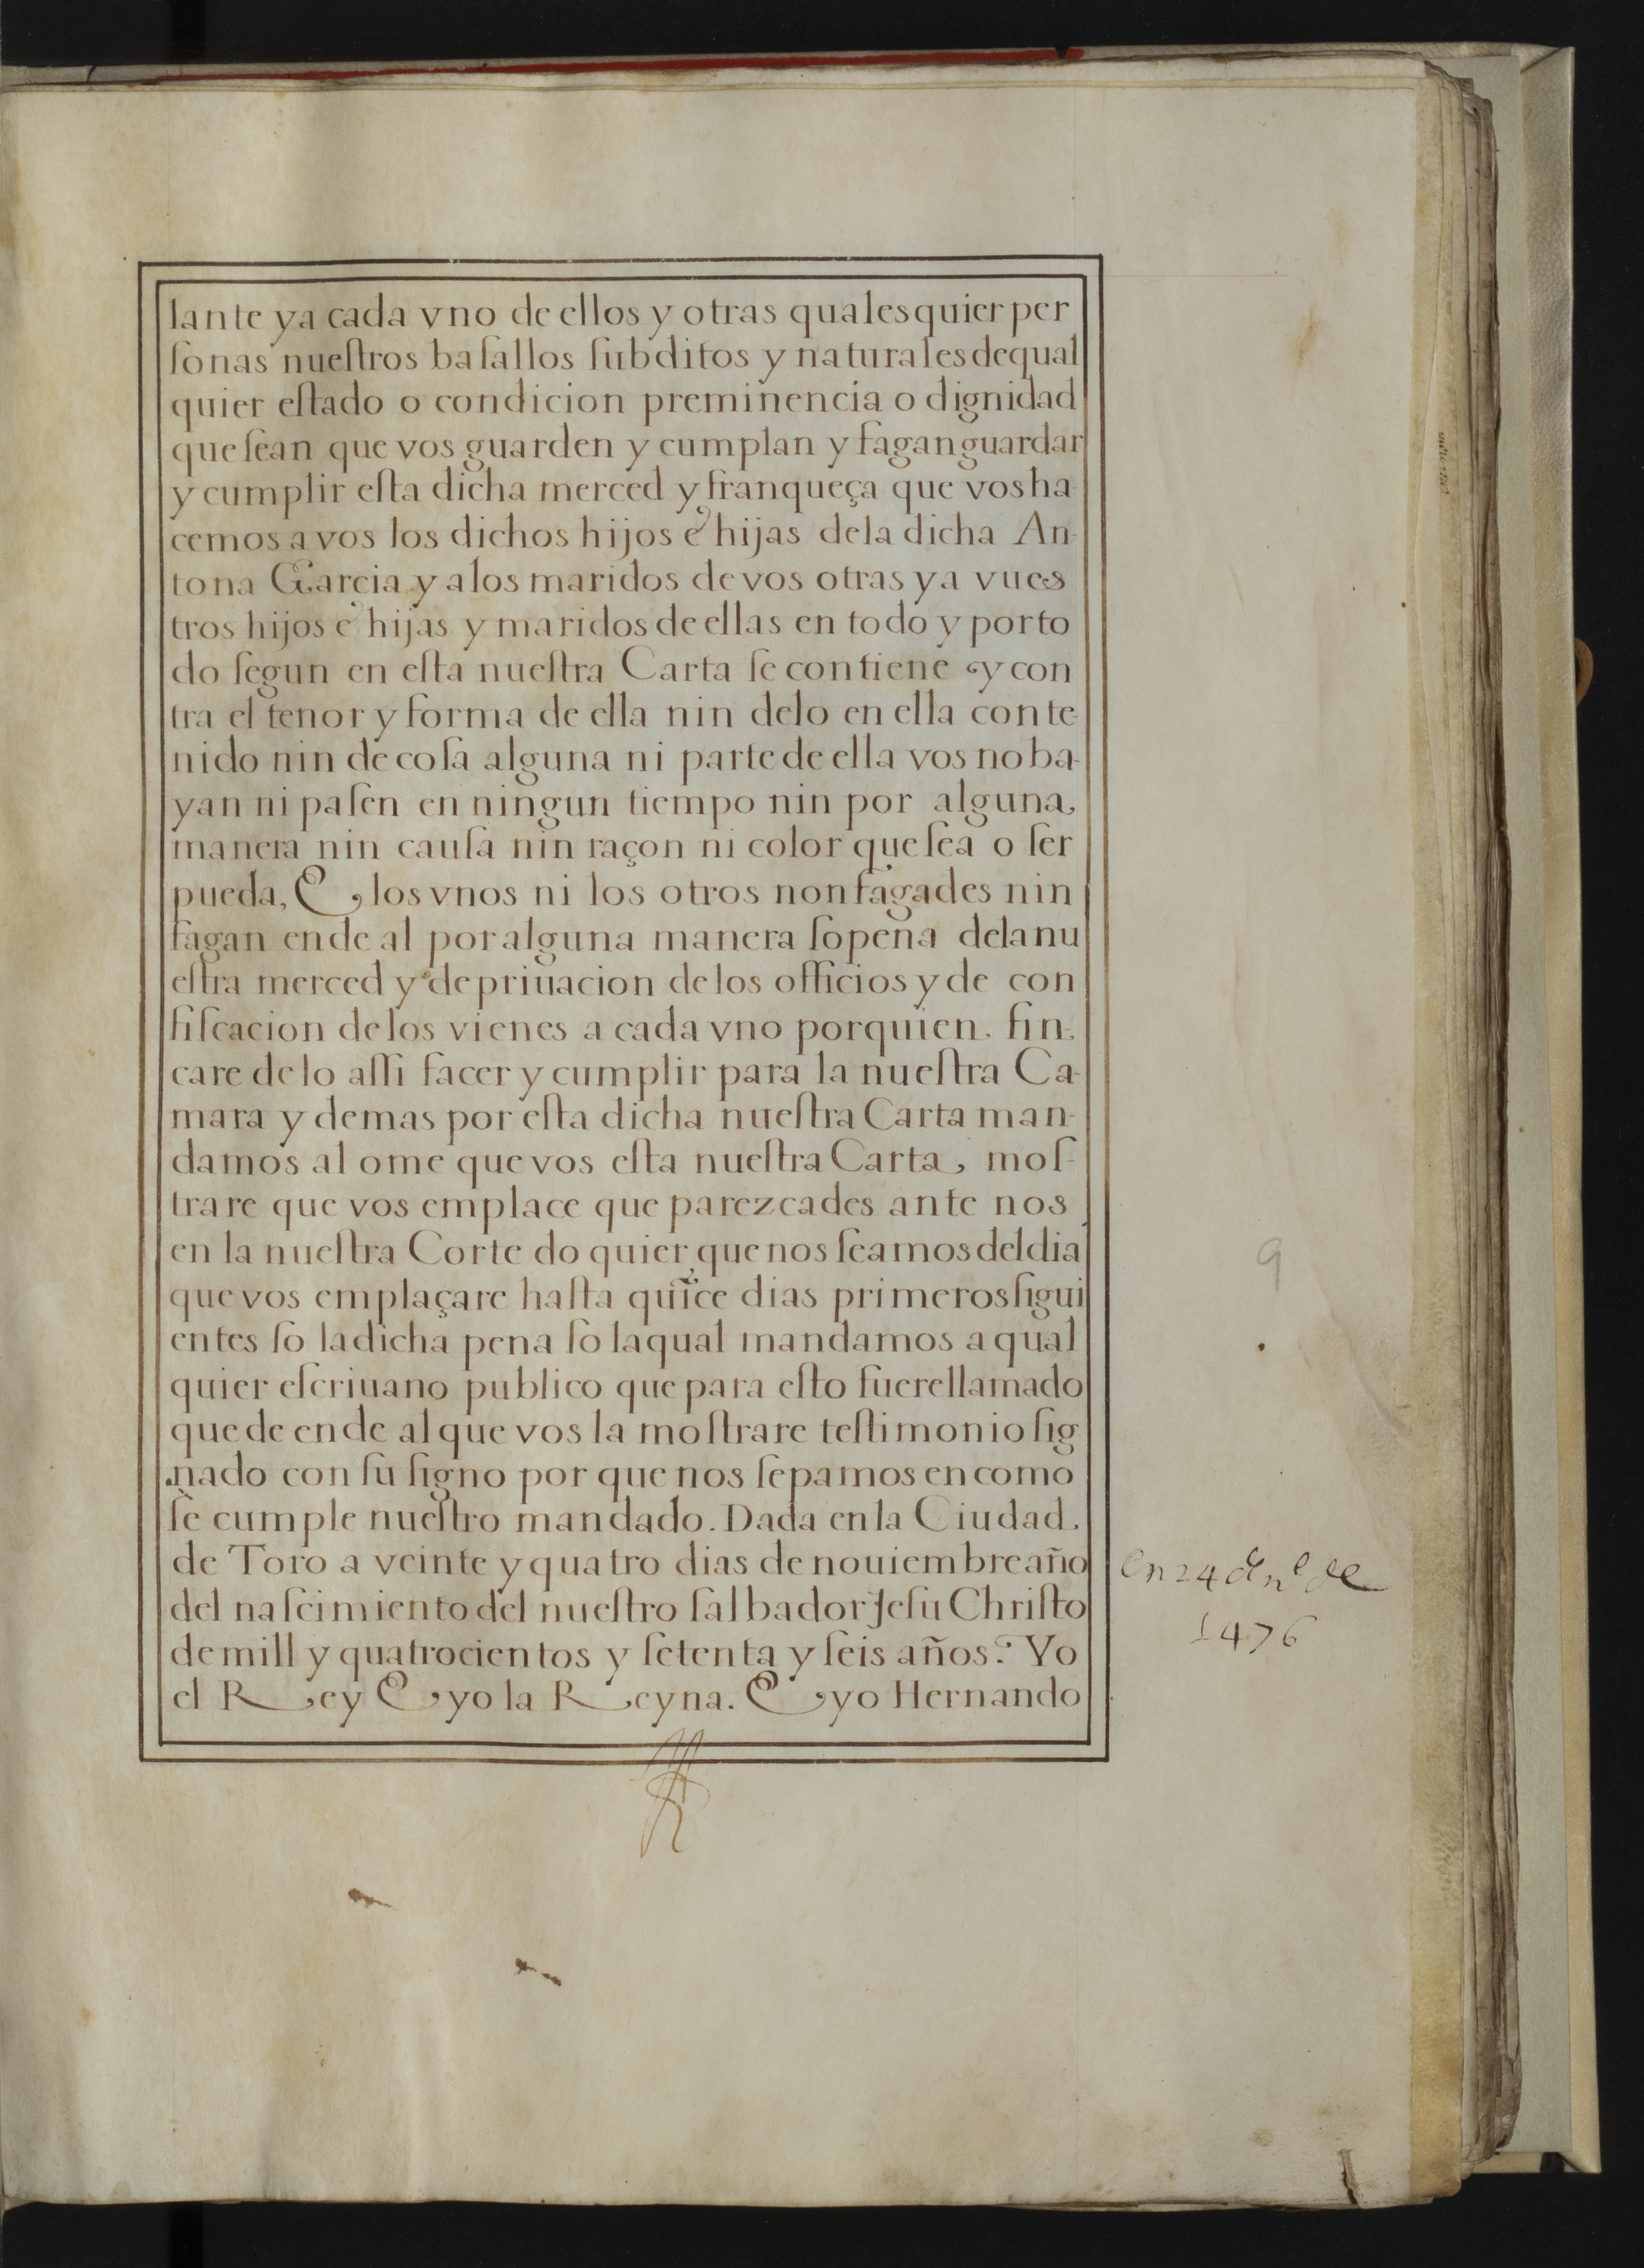 lante ya cada vno de ellos y otras qualesquier per
ſonas nueſtros baſallos ſubditos y naturales de qual
quier eſtado o condicion preminencia o dignidad
que ſean que vos guarden y cumplan y fagan guardar
y cumplir eſta dicha merced y franqueça que vos ha
cemos a vos los dichos hijos e hijas dela dicha An-
tona Garcia y a los maridos de vos otras ya vues
tros hijos e hijas y maridos de ellas en todo y por to
do ſegun en eſta nueſtra Carta ſe contiene y con
tra el tenor y forma de ella nin delo en ella conte-
nido nin de coſa alguna ni parte de ella vos no ba-
yan ni paſen en ningun tiempo nin por alguna,
manera nin cauſa nin raçon ni color que ſea o ſer
pueda, E, los vnos ni los otros non fagades nin
fagan ende al por alguna manera ſo pena dela nu
eſtra merced y de priuacion de los officios y de con
fiſcacion de los vienes a cada vno por quien. fin.
care de lo aſſi facer y cumplir para la nueſtra Ca-
mara y demas por eſta dicha nueſtra Carta man-
damos al ome que vos eſta nueſtra Carta, moſ-
trare que vos emplace que parezcades ante nos
en la nueſtra Corte do quier que nos ſeamos del dia
que vos emplaçare haſta quĩce dias primeros ſigui
entes ſo la dicha pena ſo la qual mandamos a qual
quier eſcriuano publico que para eſto fuere llamado
que de ende al que vos la moſtrare teſtimonio ſig
nado con ſu ſigno por que nos ſepamos en como
ſe cumple nueſtro mandado. Dada en la Ciudad,
de Toro a veinte y quatro dias de nouiembre año
del naſcimiento del nueſtro ſalbador Jeſu Chriſto
de mill y quatrocientos y ſetenta y ſeis años. Yo
el Rey E yo la Reyna. E yo Hernando
9
en 24 de n.e de
1476